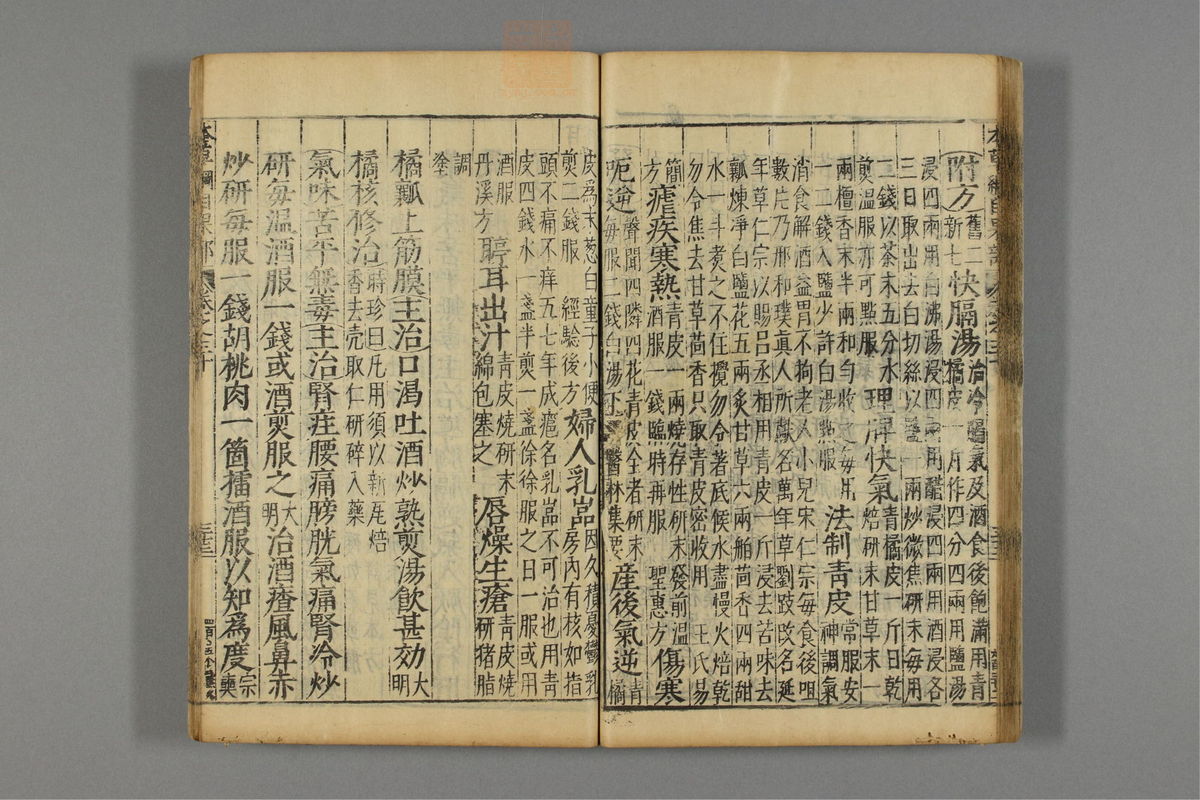 附方舊二新七快膈湯治冷膈氣及酒食後飽滿用青橘皮一斤作四分四兩用鹽湯
浸四兩用百沸湯浸四兩用醋浸四兩用酒浸各三日取出去白切絲以鹽一兩炒微焦研末每用
二錢以茶末五分水煎溫服亦可點服理脾快氣青橘皮一斤日乾焙研末甘草末一
兩檀香末半兩和勻收之每用一二錢入鹽少許白湯點服法制青皮常服安神調氣
消食解酒益胃不拘老人小兒宋仁宗每食後咀數片乃邢和璞真人所獻名萬年草劉跂改名延
年草仁宗以賜呂丞相用青皮一斤浸去苦味去瓤煉凈白鹽花五兩炙甘草六兩舶茴香四兩甜
水一斗煑之不住攪勿令著底候水盡慢火焙乾勿令焦去甘草茴香只取青皮密收用 王氏易
簡方瘧疾寒熱青皮一兩燒存性研末發前溫酒服一錢臨時再服 聖惠方傷寒
呃逆聲聞四隣四花青皮全者研末每服二錢白湯下 醫林集要產後氣逆青橘
皮為末葱白童子小便煎二錢服 經驗後方婦人乳嵒因久積憂鬱乳房內有核如指
頭不痛不痒五七年成瘡名乳嵒不可治也用青皮四錢水一盞半煎一盞徐徐服之日一服或用
酒服丹溪方聤耳出汁青皮燒研末綿包塞之唇燥生瘡青皮燒研猪脂
調塗
橘瓤上筋膜主治口渴吐酒炒熟煎湯飲甚効大明
橘核修治時珍曰凡用須以新瓦焙香去壳取仁研碎入藥
氣味苦平無毒主治腎疰腰痛膀胱氣痛腎冷炒
研每溫酒服一錢或酒煎服之大明治酒㾴風鼻赤
炒研每服一錢胡桃肉一箇擂酒服以知為度宗奭